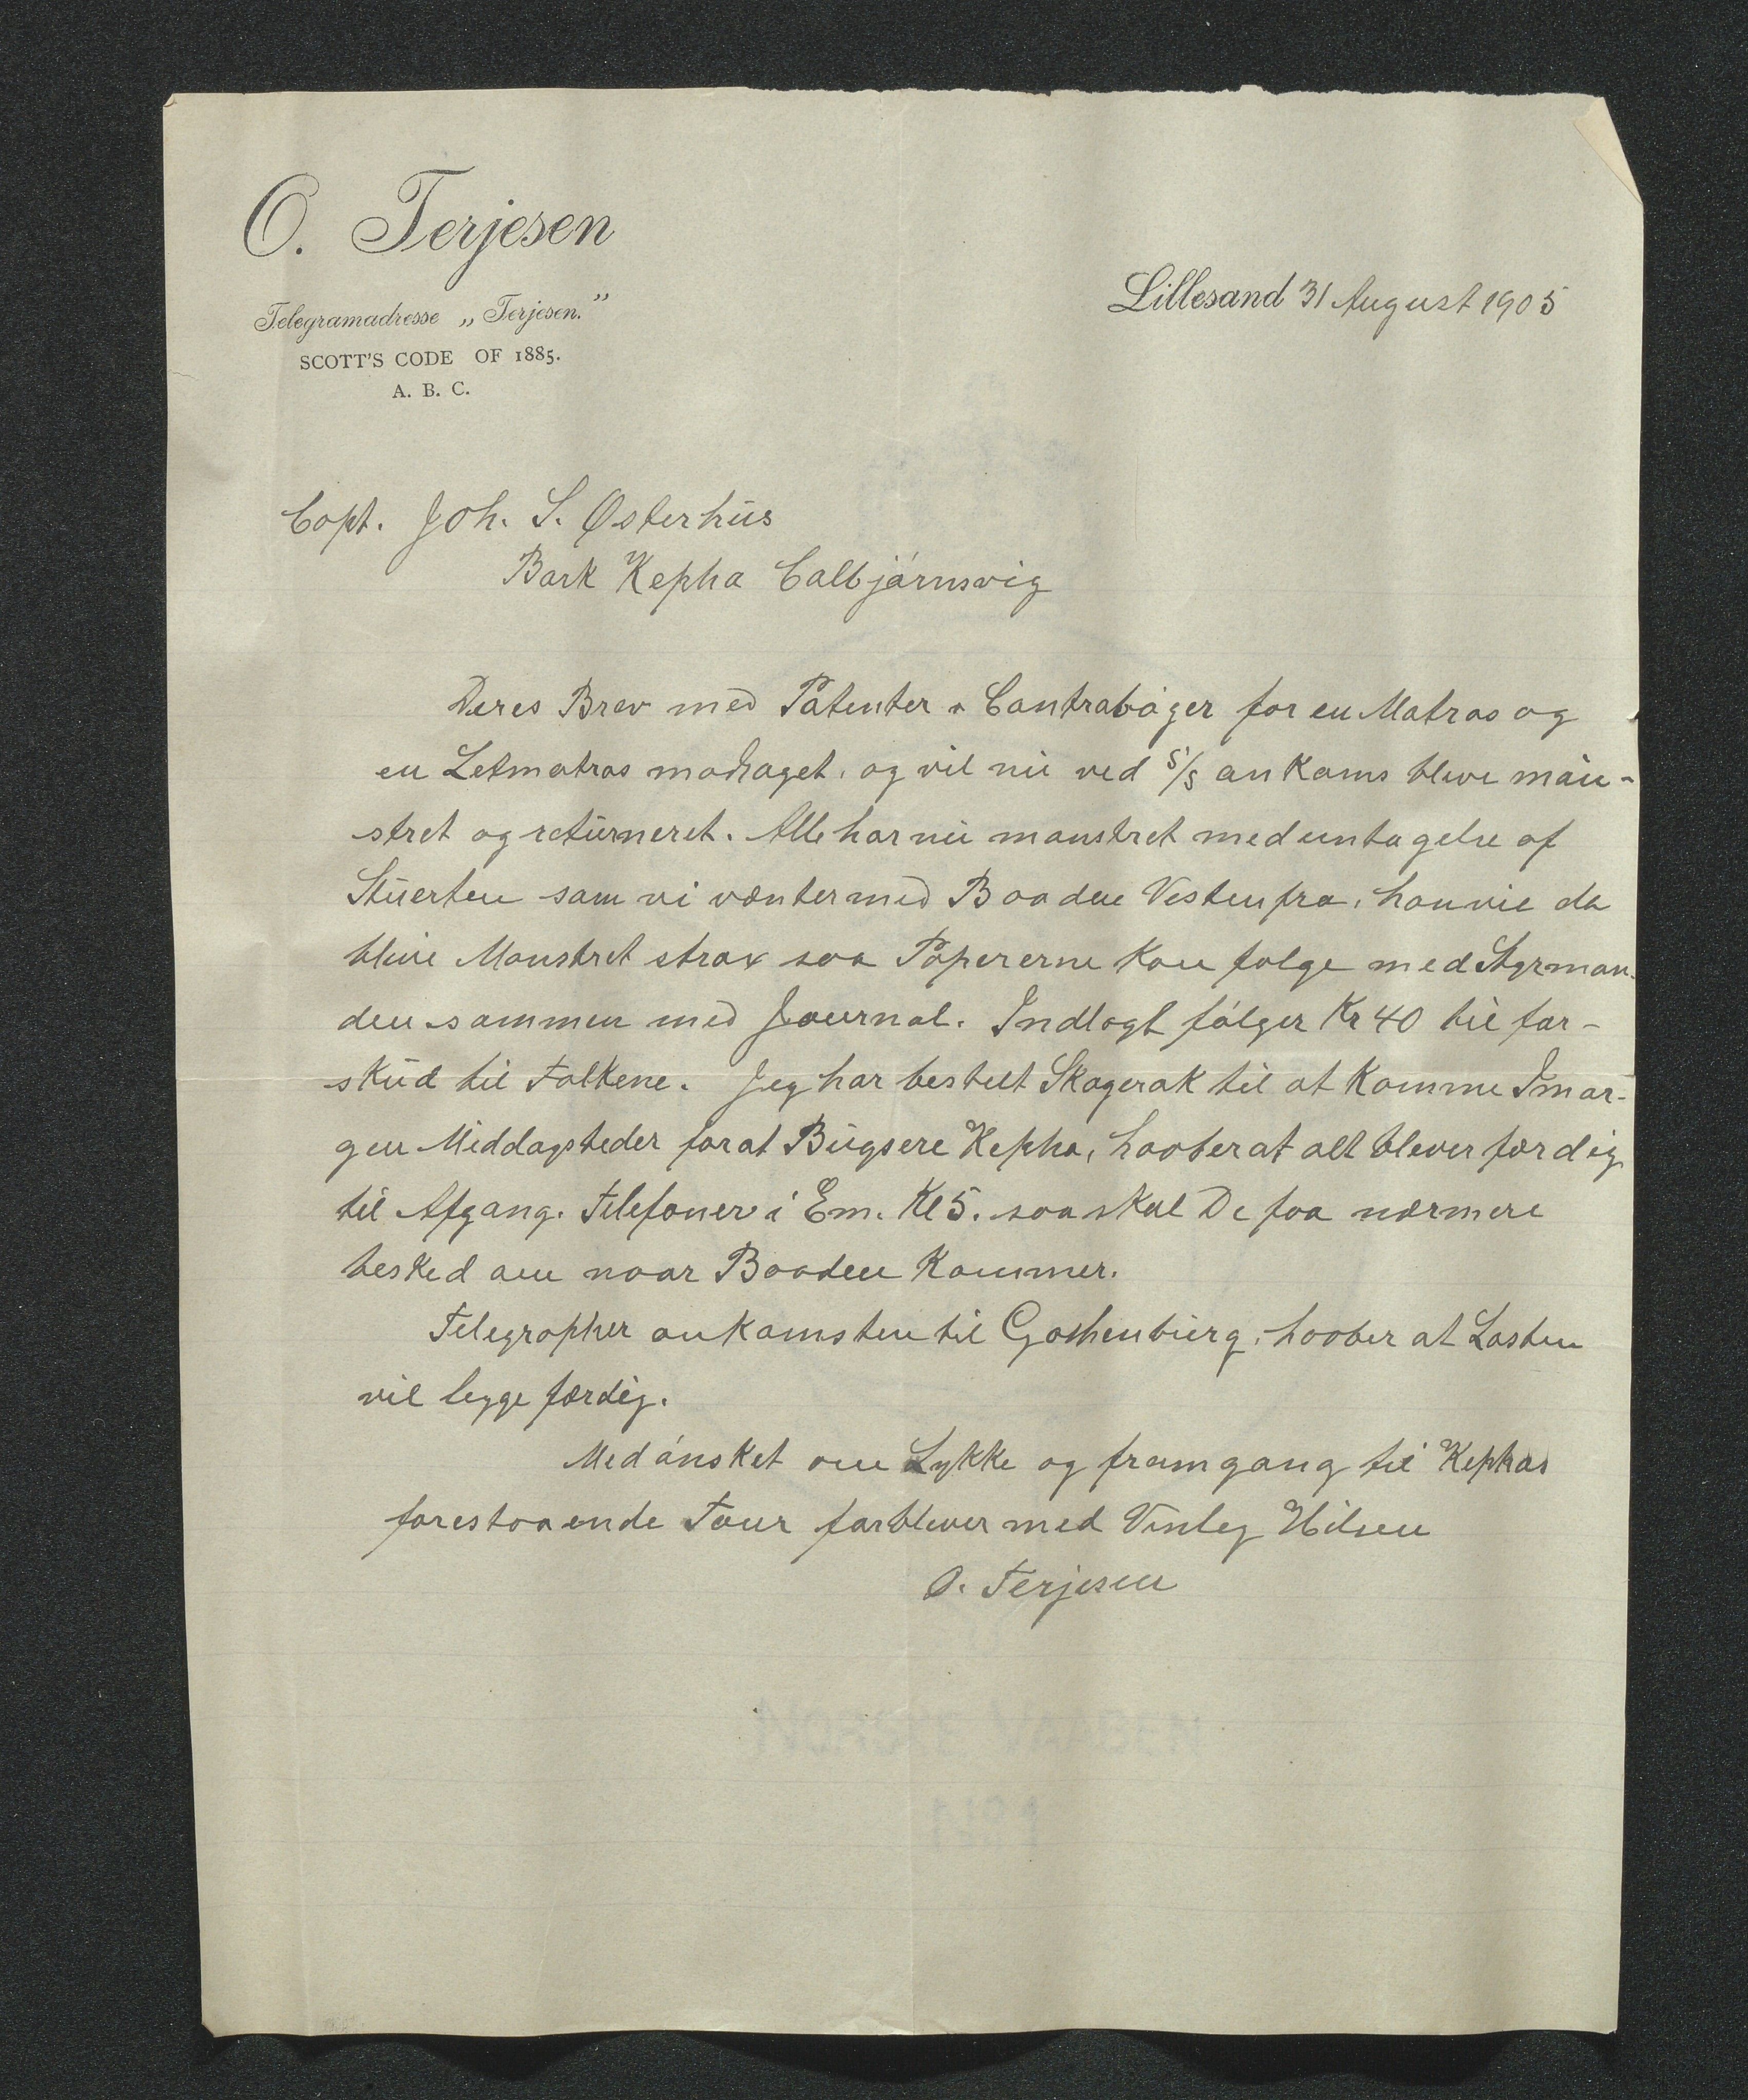 O. Terjesen
Telegramadresse „Terjesen.”
SCOTT'S CODE OF 1885.
A. B. C.
Lillesand 31 August 1905
Capt. Joh. S. Østerhus
Bark Kepha Calbjørnsvig
Deres Brev med Patenter & Contrabøger for en Matros og
en Letmatros modtaget, og vil nu ved S/S ankoms blive møn-
stret og returneret. Alle har nu mønstret med untagelse af
Stuerten som vi vænter med Baaden Vestenfra, han vil da
blive Mønstret strax saa Papererne kan følge med Styrman-
den sammen med Journal. Indlagt følger Kr 40 til for-
skud til Folkene. Jeg har bestilt Skagerak til at komme Imor-
gen Middagsteder for at Bugsere Kepha, haaber at alt bliver færdig
til Afgang. Telefoner i Em. Kl 5. saa skal De faa nærmere
besked om naar Baaden Kommer.
Telegrapher ankomsten til Gothenburg, haaber at Lasten
vil ligge færdig.
Med ønsket om Lykke og framgang til Kephas
forestaaende Tour forbliver med Vinlig Hilsen
O. Terjesen